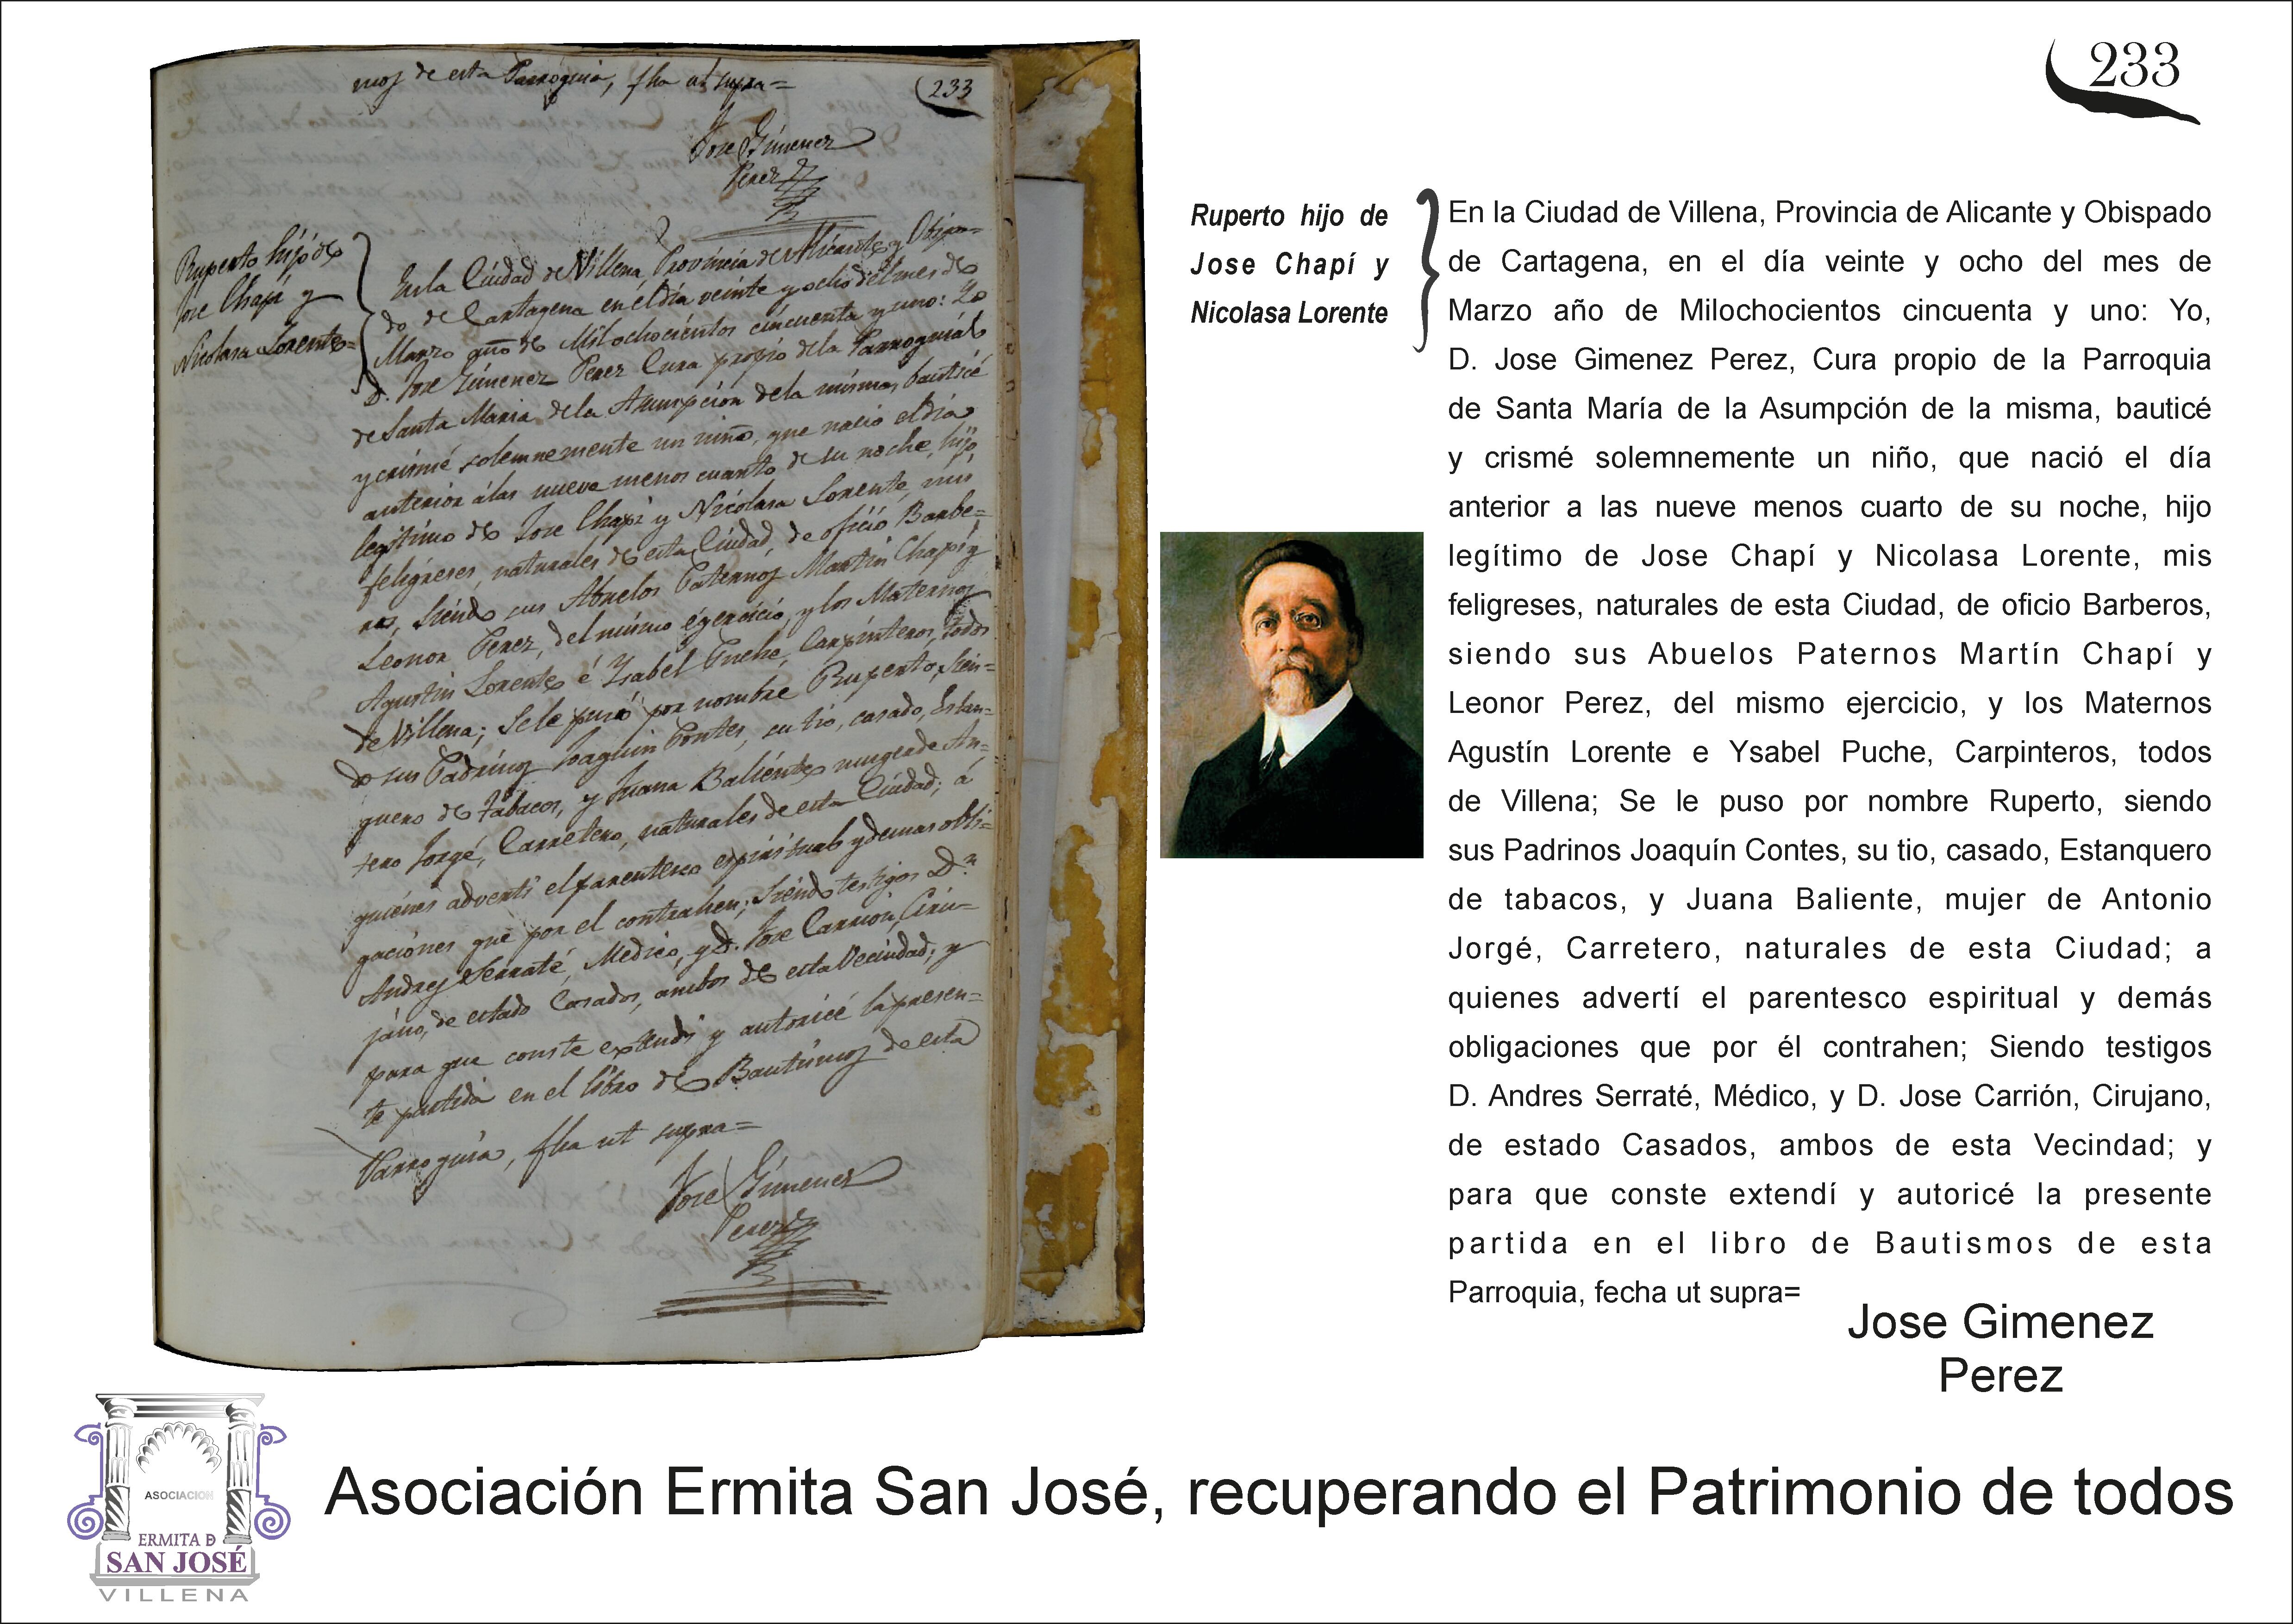 mos de esta Parroquia, fha ut supra=
233
Jose Gimenez
Perez
Ruperto hijo de
Jose Chapí y
Nicolasa Lorente=
En la Ciudad de Villena, Provincia de Alicante y Obispa=
do de Cartagena en el día veinte y ocho del mes de
Marzo año de Mil ochocientos cincuenta y uno: Yo
D. Jose Gimenez Perez Cura propio de la Parroquial
de Santa Maria de la Asumpción de la misma, bauticé
y crismé solemnemente un niño, que nació el día
anterior á las nueve menos cuarto de su noche, hijo
legítimo de Jose Chapí y Nicolasa Lorente, mis
feligreses, naturales de esta Ciudad, de oficio Barbe=
ros, siendo sus Abuelos Paternos Martin Chapí y
Leonor Perez, del mismo égercicio, y los Maternos
Agustin Lorente é Ysabel Puche, Carpinteros, todos
de Villena; Se le puso por nombre Ruperto, Sien=
do sus Padrinos Joaquin Contes, su tio, casado, Estan=
quero de tabacos, y Juana Baliente muger de An=
tono Jorgé, Carretero, naturales de esta Ciudad; á
quiénes advertí el parentesco espiritual y demas obli=
gaciónes que por el contrahen; Siendo testigos Dn.
Andres Serraté, Medico, y D. Jose Carrión, Ciru=
jano, de estado Casados, ambos de esta Vecindad; y
para que conste extendí y autoricé la presen=
te partida en el libro de Bautismos de esta
Parroquia, fha ut supra=
Jose Gimenez
Perez
233
Ruperto hijo de
Jose Chapí y
Nicolasa Lorente
En la Ciudad de Villena, Provincia de Alicante y Obispado
de Cartagena, en el día veinte y ocho del mes de
Marzo año de Milochocientos cincuenta y uno: Yo,
D. Jose Gimenez Perez, Cura propio de la Parroquia
de Santa María de la Asumpción de la misma, bauticé
y crismé solemnemente un niño, que nació el día
anterior a las nueve menos cuarto de su noche, hijo
legítimo de Jose Chapí y Nicolasa Lorente, mis
feligreses, naturales de esta Ciudad, de oficio Barberos,
siendo sus Abuelos Paternos Martín Chapí y
Leonor Perez, del mismo ejercicio, y los Maternos
Agustín Lorente e Ysabel Puche, Carpinteros, todos
de Villena; Se le puso por nombre Ruperto, siendo
sus Padrinos Joaquín Contes, su tio, casado, Estanquero
de tabacos, y Juana Baliente, mujer de Antonio
Jorgé, Carretero, naturales de esta Ciudad; a
quienes advertí el parentesco espiritual y demás
obligaciones que por él contrahen; Siendo testigos
D. Andres Serraté, Médico, y D. Jose Carrión, Cirujano,
de estado Casados, ambos de esta Vecindad; y
para que conste extendí y autoricé la presente
partida en el libro de Bautismos de esta
Parroquia, fecha ut supra=
Jose Gimenez
Perez
ASOCIACION
ERMITA D
SAN JOSÉ
VILLENA
Asociación Ermita San José, recuperando el Patrimonio de todos